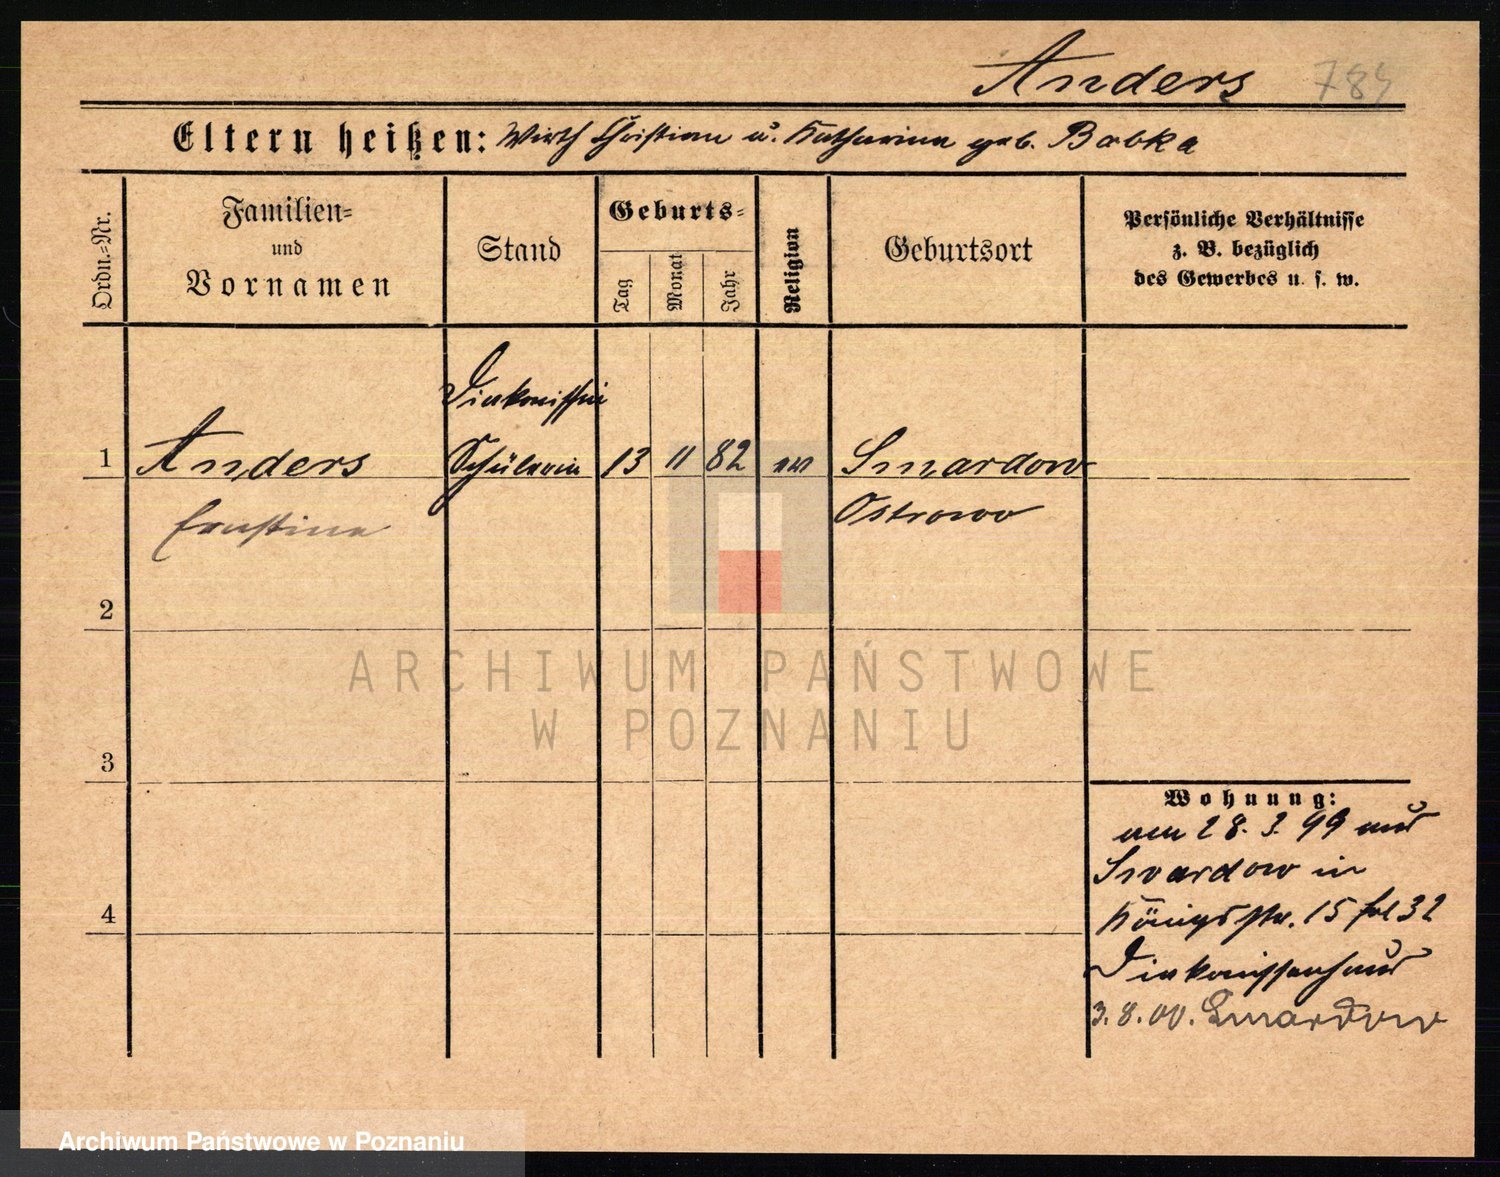 Anders 784
Eltern heißen: Wirth Christian u. Katharina geb. Babka
Ordn.-Nr.
Familien-
und
Vornamen
Stand
Geburts-
Tag
Monat
Jahr
Religion
Geburtsort
Persönliche Verhältnisse
z. B. bezüglich
des Gewerbes u. s. w.
Diakonissin
1 Anders Schülerin 13 11 82 ev Smardow
Ernstine Ostrowo
2
3
4
Wohnung:
am 28. 3. 99 aus
Smardow in
Königsstr. 15 frl 32
Diakonissenhaus
3. 8. 00. Smardow
ARCHIWUM PAŃSTWOWE
W POZNANIU
Archiwum Państwowe w Poznaniu